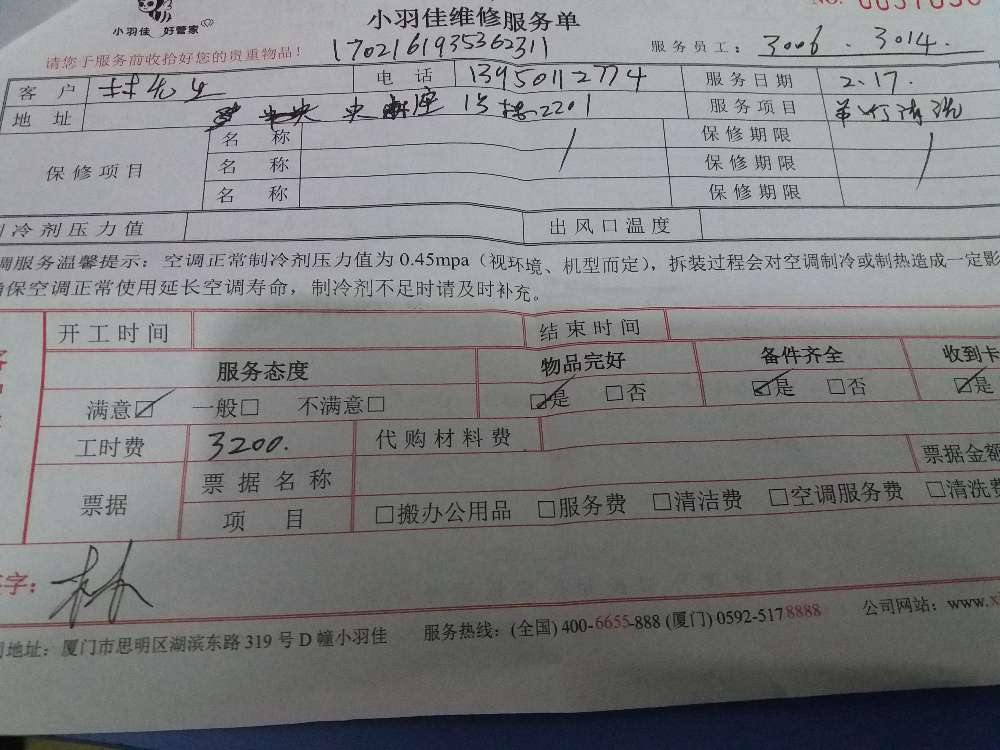 小羽佳 好管家
小羽佳维修服务单
请您于服务前收拾好您的贵重物品！
1702161935362311
服务员工：3006. 3014.
客户 林先生 电话 13950112774 服务日期 2.17.
地址 央座 15栋-2201 服务项目
保修项目 名称 保修期限
名称 保修期限
名称 保修期限
冷剂压力值 出风口温度
调服务温馨提示：空调正常制冷剂压力值为0.45mpa（视环境、机型而定），拆装过程会对空调制冷或制热造成一定影
保空调正常使用延长空调寿命，制冷剂不足时请及时补充。
开工时间 结束时间
服务态度 物品完好 备件齐全 收到卡
满意☑ 一般□ 不满意□ ☑是 □否 ☑是 □否 ☑是
工时费 3200. 代购材料费
票据 票据名称 票据金额
项目 □搬办公用品 □服务费 □清洁费 □空调服务费 □清洗费
字： 林
地址：厦门市思明区湖滨东路319号D幢小羽佳 服务热线：(全国) 400-6655-888 (厦门) 0592-5178888 公司网站：www.x